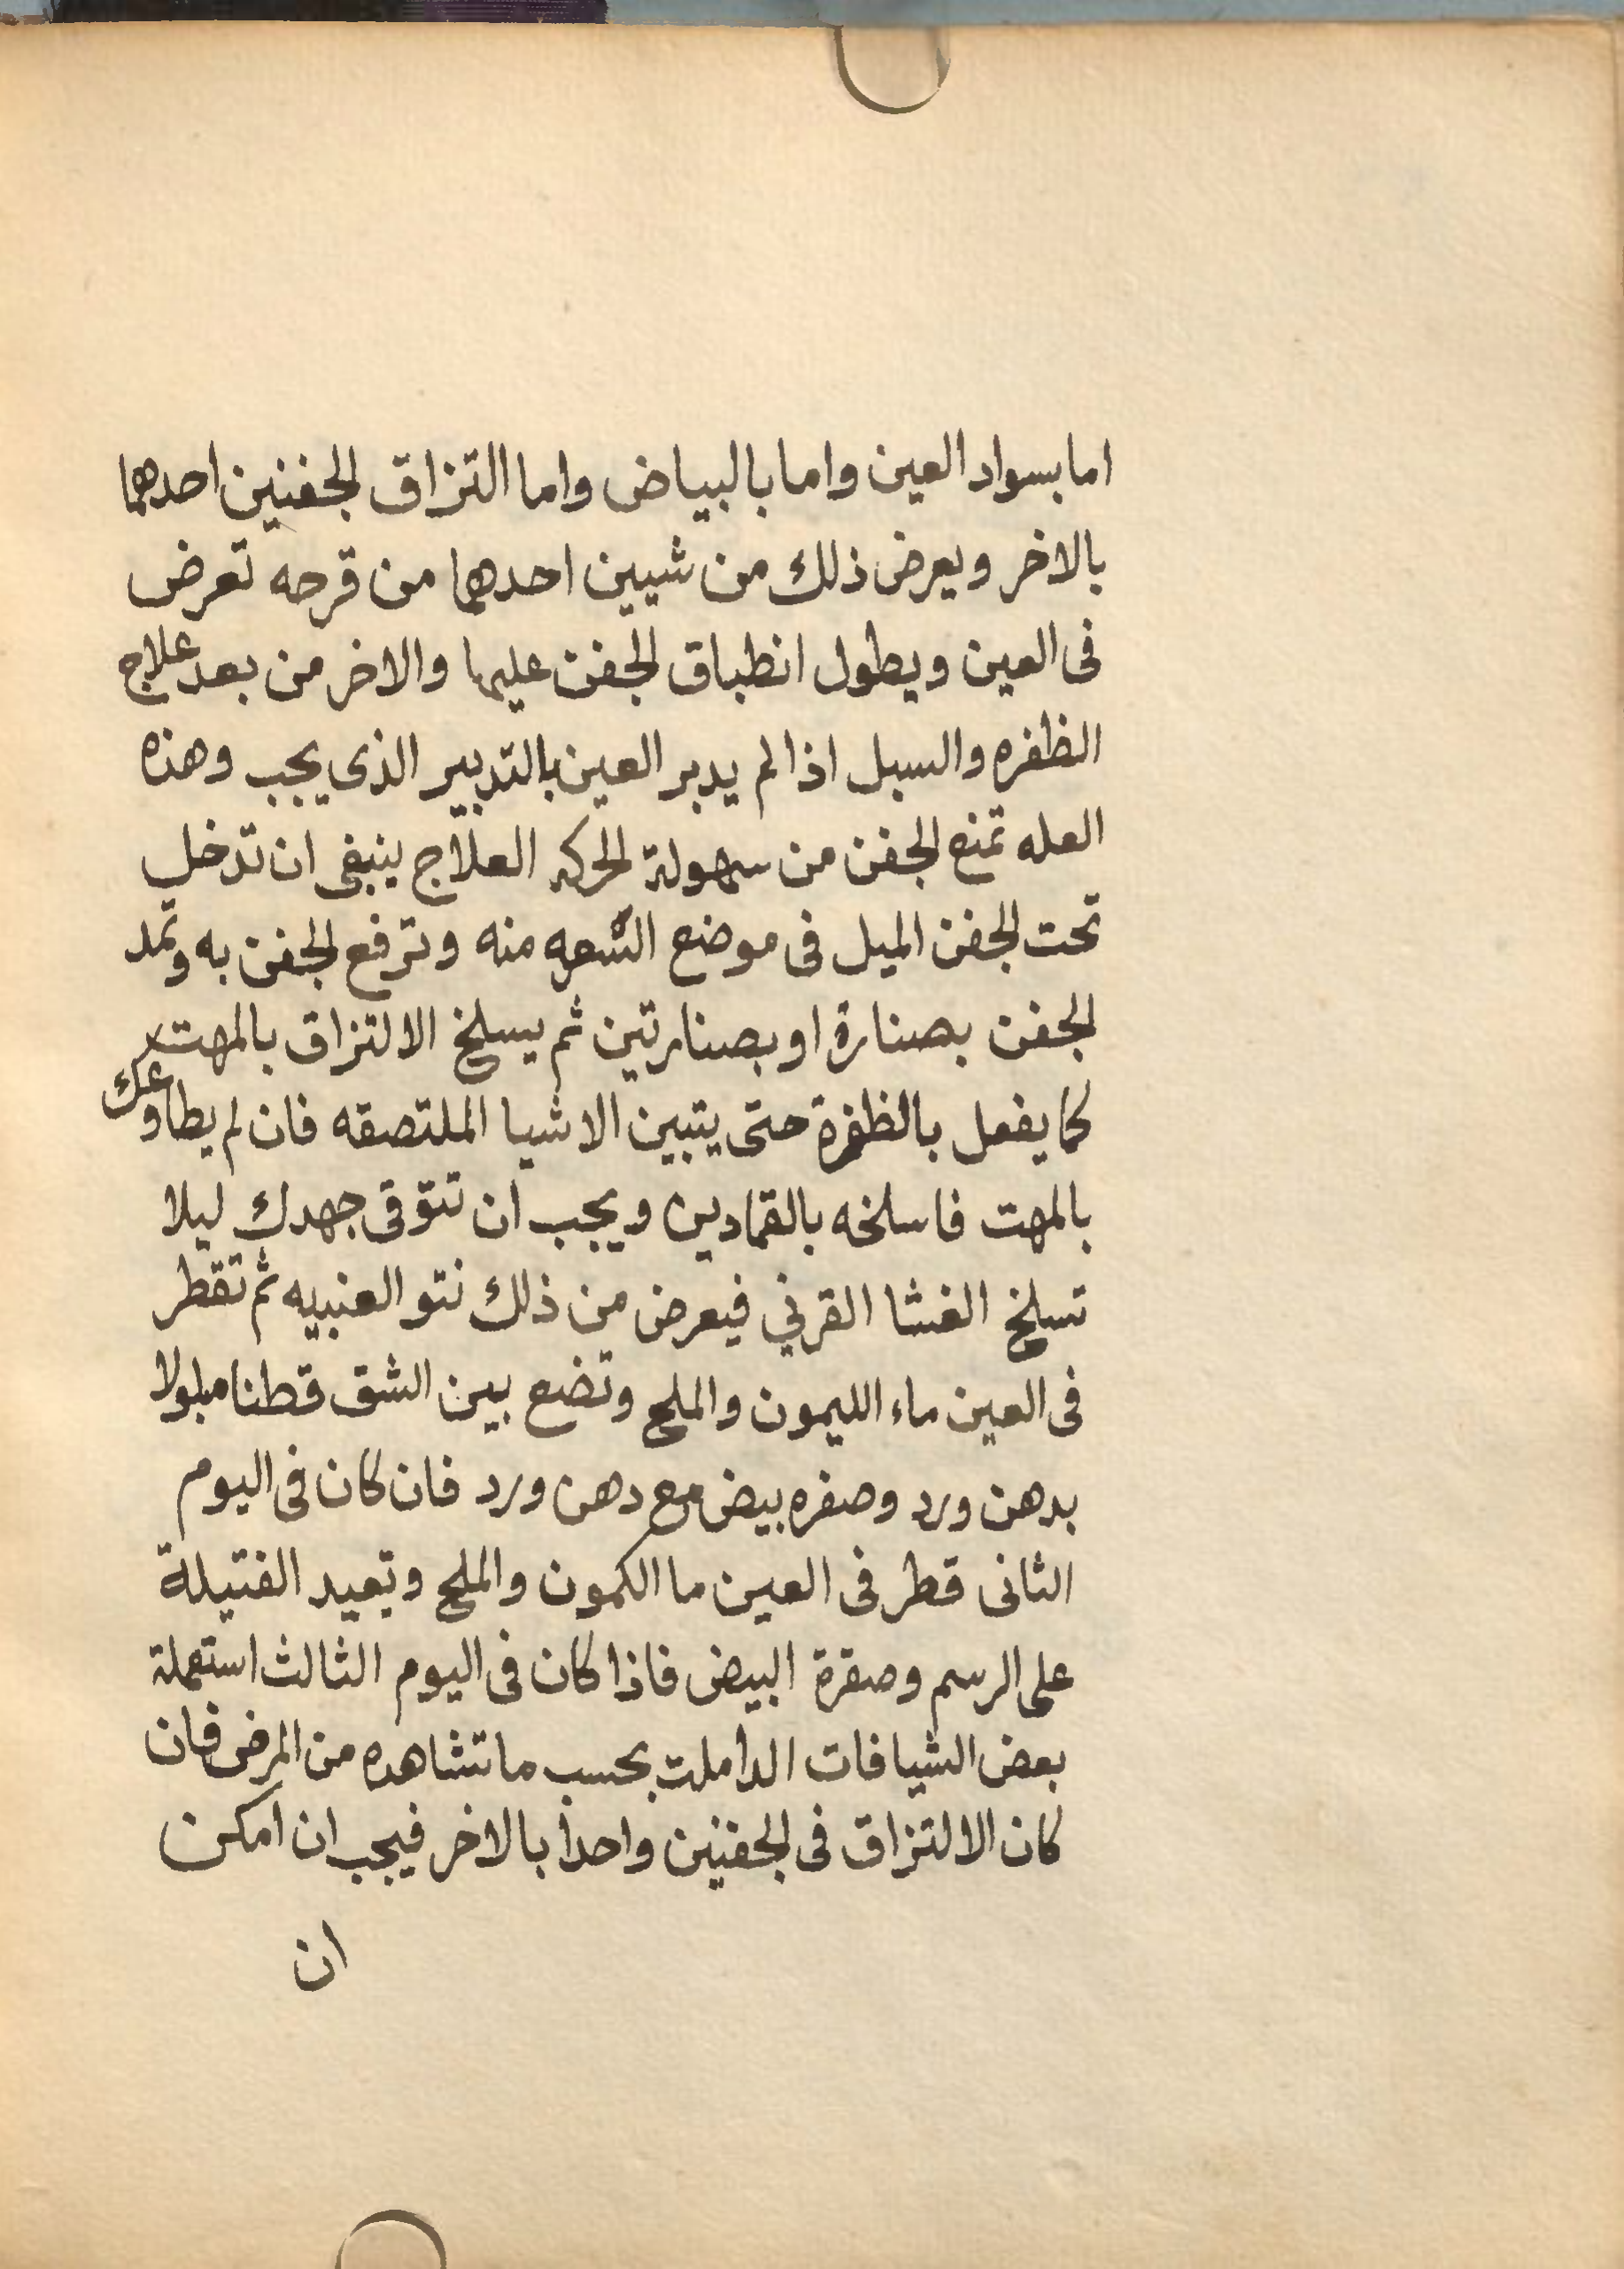 اما بسواد العين واما بالبياض واما التزاق الجفنين احدهما
بالاخر ويعرض ذلك من شيين احدهما من قرحه تعرض
فى العين ويطول انطباق الجفن عليها والاخر من بعد علاج
الظفره والسبل اذا لم يدبر العين بالتدبير الذى يجب وهذه
العله تمنع الجفن من سهولة الحركه العلاج ينبغى ان تدخل
تحت الجفن الميل فى موضع السعه منه وترفع الجفن به وتمد
الجفن بصنارة او بصنارتين ثم يسلخ الالتزاق بالمهت
كما يفعل بالظفرة حتى يتبين الاشيا الملتصقه فان لم يطاوعك
بالمهت فاسلخه بالقمادين ويجب ان تتوقى جهدك ليلا
تسلخ الغشا القرني فيعرض من ذلك نتو العنبيه ثم تقطر
فى العين ماء الليمون والملح وتضع بين الشق قطنا مبلولا
بدهن ورد وصفره بيض مع دهن ورد فان كان فى اليوم
الثانى قطر فى العين ما الكمون والملح وتعيد الفتيلة
على الرسم وصفرة البيض فاذا كان فى اليوم الثالث استعملة
بعض الشيافات الداملت بحسب ما تشاهده من المرض فان
كان الالتزاق فى الجفنين واحدا بالاخر فيجب ان امكن
ان